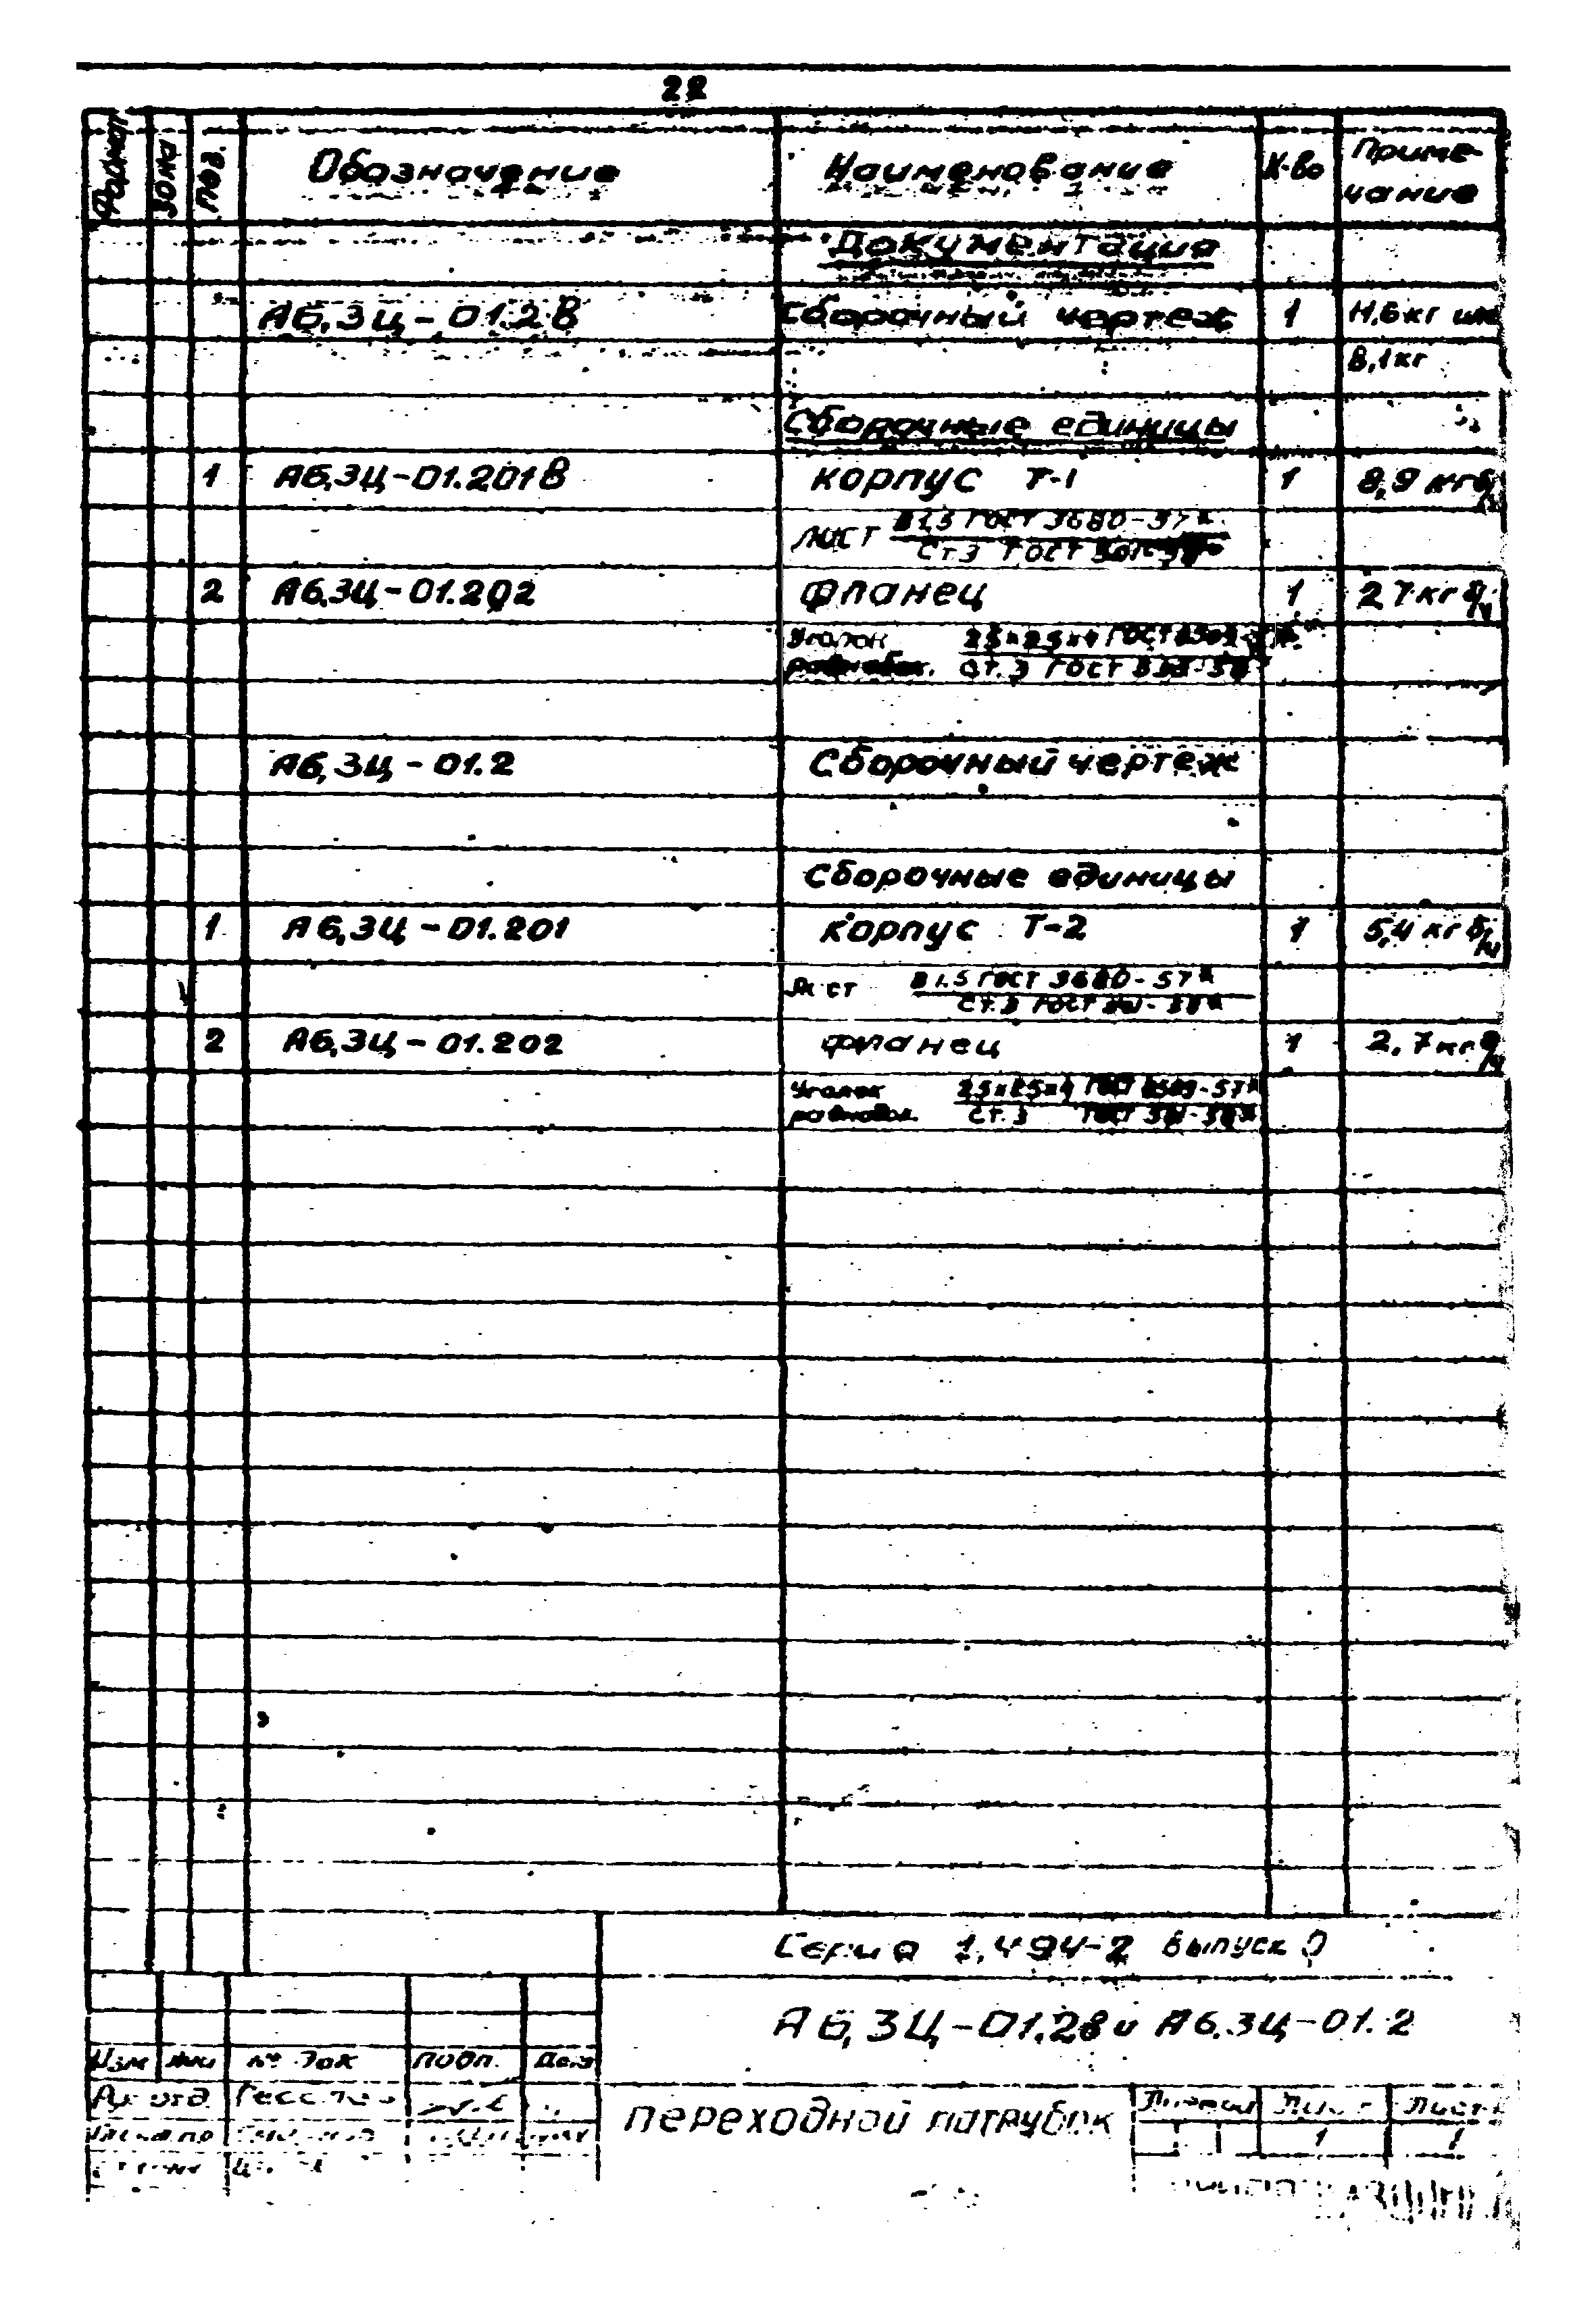 22
Формат Зона Поз. Обозначение Наименование К-во Примечание
Документация
А6,3Ц-01.2В Сборочный чертеж 1 11,6кг или
8,1кг
Сборочные единицы
1 А6,3Ц-01.201В корпус Т-1 1 8,9 кг б/ч
лист В 1,5 ГОСТ 3680-57*
Ст.3 ГОСТ
2 А6,3Ц-01.202 фланец 1 2,7кг б/ч
Уголок 25×25×4 ГОСТ
равнобок. Ст.3 ГОСТ
А6,3Ц-01.2 Сборочный чертеж
Сборочные единицы
1 А6,3Ц-01.201 корпус Т-2 1 5,4 кг б/ч
Лист В 1.5 ГОСТ 3680-57*
Ст.3 ГОСТ
2 А6,3Ц-01.202 фланец 1 2,7кг б/ч
Уголок 25×25×4 ГОСТ 8509-57*
равнобок. Ст.3 ГОСТ
Серия 1.494-2 выпуск 0
А6,3Ц-01.2В и А6.3Ц-01.2
Изм № док подп. Дата
переходной патрубок
Лист
1 1